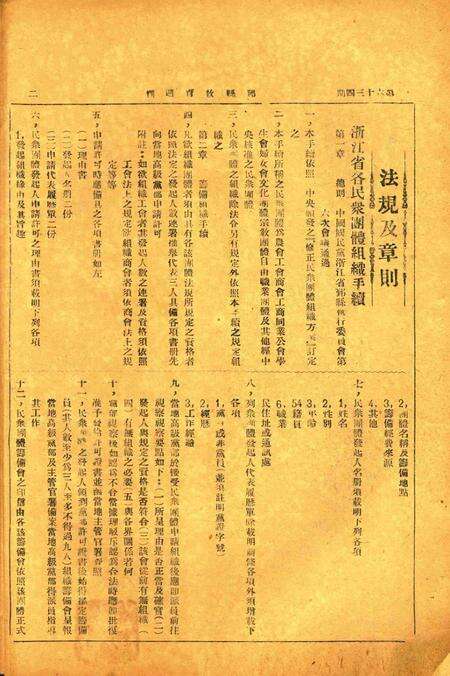 第六十三四期
鄞縣教育週刊
二
法規及章則
浙江省各民衆團體組織手續
中國國民黨浙江省鄞縣執行委員會第
六次會議通過
第一章　總則
一，本手續依照　中央頒發之「修正民衆團體組織方案」訂定
之
二，本手續所稱之民衆團體爲農會工會商會工商同業公會學
生會婦女會文化團體宗教團體自由職業團體及其他經中
央核准之民衆團體
三，民衆團體之組織除法令另有規定外依照本手續之規定組
織之
第二章　籌備組織手續
四，凡欲組織者須有各該團體法規所規定之資格者
依照法定之發起人數連署推舉代表三人具備各項書册先
向當地高級黨部申請許可
附註：如欲組織工會者發起人數之連署及資格須依照
工會法上之規定欲組織商會者須依商會法上之規
定等等
五，申請許可時應備具之各項書册如左
（一）理由書
（二）發起人名册二份
（三）發起人代表履歷單二份
六，民衆團體發起人申請許可之理由書須載明下列各項
1，發起組織緣由及其旨趣
2，團體名稱及籌備地點
3，籌備經費來源
4，其他
七，民衆團體發起人名册須載明下列各項
1，姓名
2，性別
3，年齡
4，籍貫
5，職業
6，住址或通訊處
八，民衆團體發起人代表履歷單除載明前條各項外須增載下
各項
1，黨員或非黨員（並須註明黨證字號）
2，經歷
3，工作經過
九，當地高級黨部於接受民衆團體申請組織後應即派員前往
視察視察要點如下：（一）所呈理由是否正當及確實（二）
發起人與規定之資格是否符合（三）該會從前有無組織（
四）有無組織之必要（五）與各界關係若何
十，黨部視察後如認爲不合當據理駁斥認爲合法時應即批復
准予發給許可證書並函當地主管官署查照
十一，民衆團體之發起人領到黨部許可證書後始得推定籌備
員（其人數至少爲三人至多不得過九人）組織籌備會呈報
當地高級黨部及主管官署備案當地高級黨部得派員指導
其工作
十二，民衆團體籌備會之印信由各該籌備會依照該團體正式